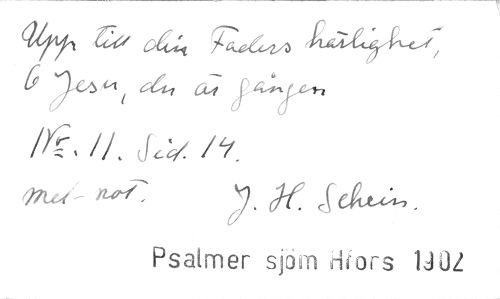 Upp till din Faders härlighet,
O Jesu, du är gången
Nr. 11. Sid. 14.
mel-not. J. H. Schein.
Psalmer sjöm Hfors 1902